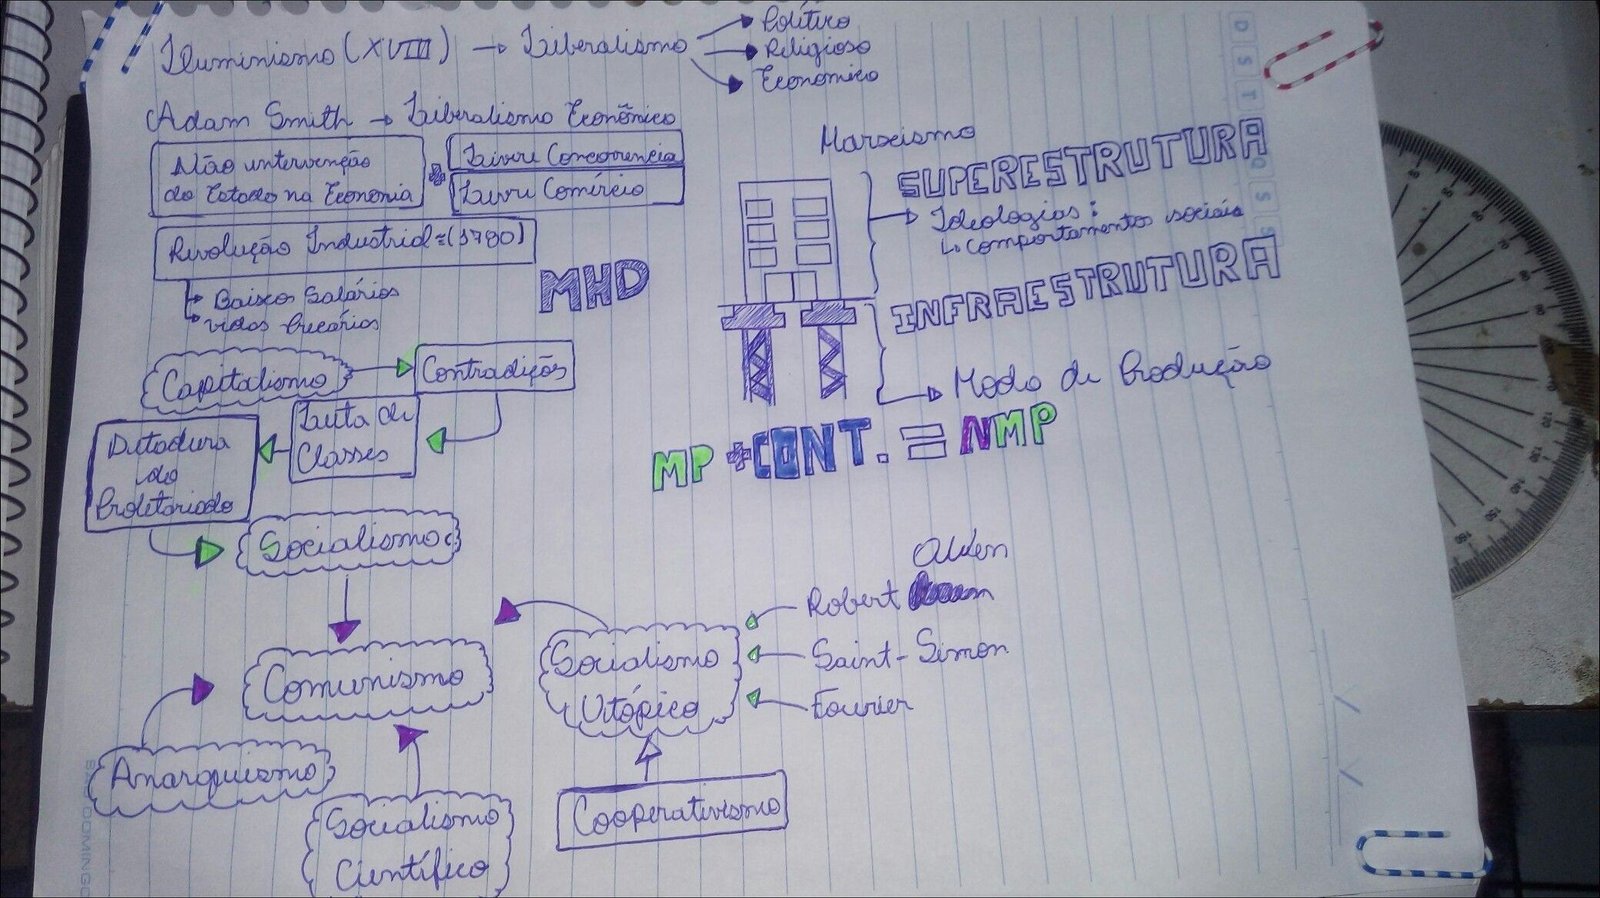 Iluminismo (XVIII) → Liberalismo
Político
Religioso
Econômico
Adam Smith → Liberalismo Econômico
Não intervenção
do Estado na Economia
+
Livre Concorrencia
Livre Comércio
Revolução Industrial = (1780)
Baixos Salários
vidas Precárias
MHD
Capitalismo
Contradições
Luta de
Classes
Ditadura
do
Proletariado
Socialismo
Comunismo
Anarquismo
Socialismo
Científico
Socialismo
Utópico
Cooperativismo
Owen
Robert
Saint-Simon
Fourier
Marxismo
SUPERESTRUTURA
Ideologias:
comportamentos sociais
INFRAESTRUTURA
Modo de Produção
MP + CONT. = NMP
D S T Q Q S S
DOMINGO